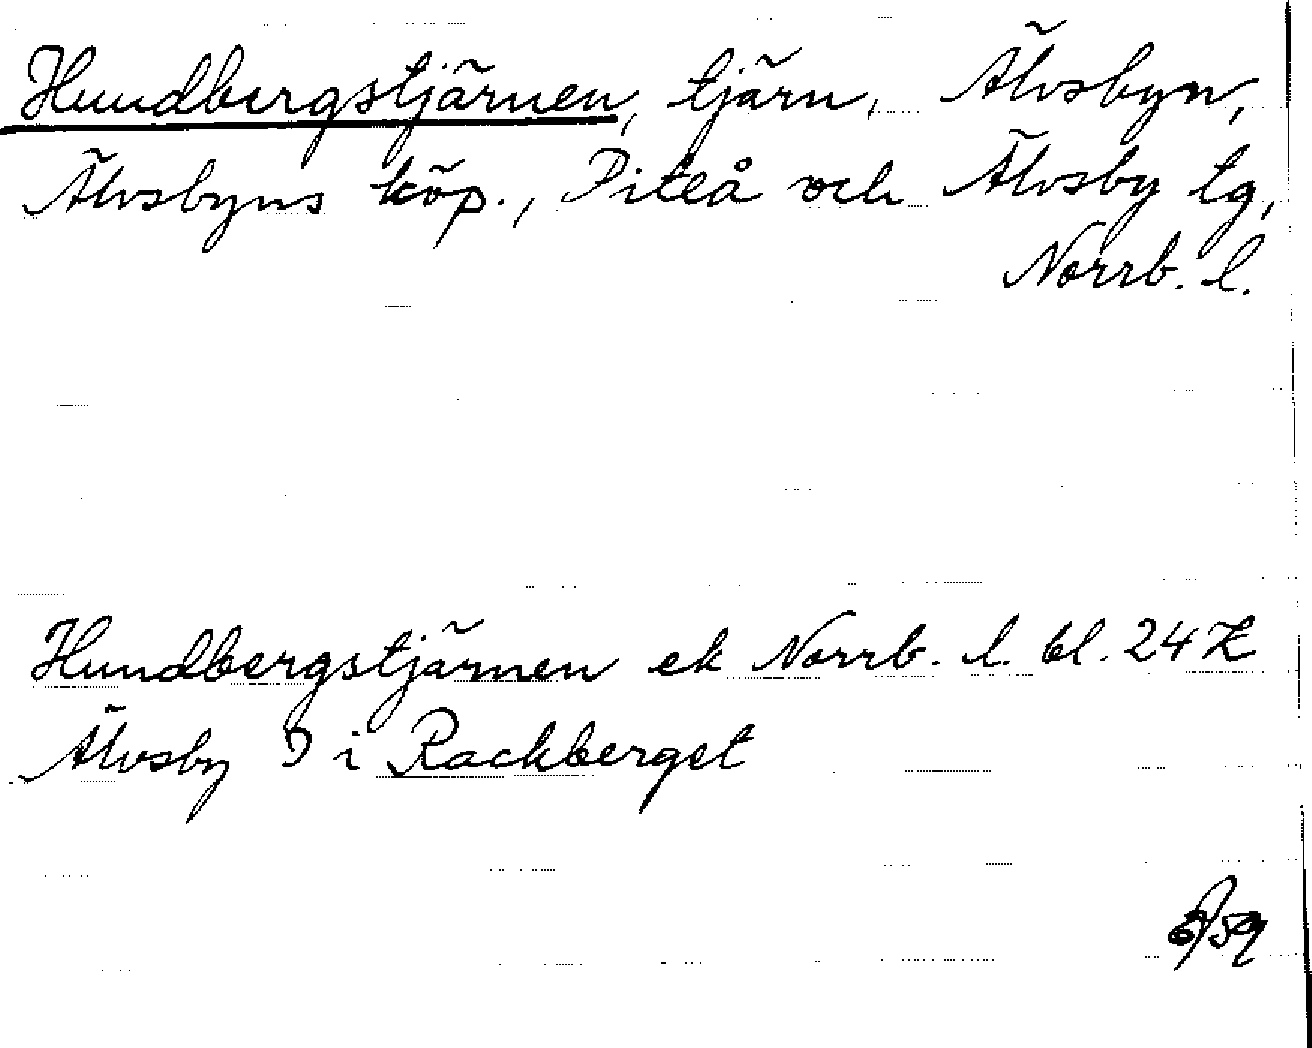 Hundbergstjärnen, tjärn, Älvsbyn,
Älvsbyns köp., Piteå och Älvsby tg,
Norrb. l.
Hundbergstjärnen ek Norrb. l. bl. 24 K
Älvsby i Rackberget